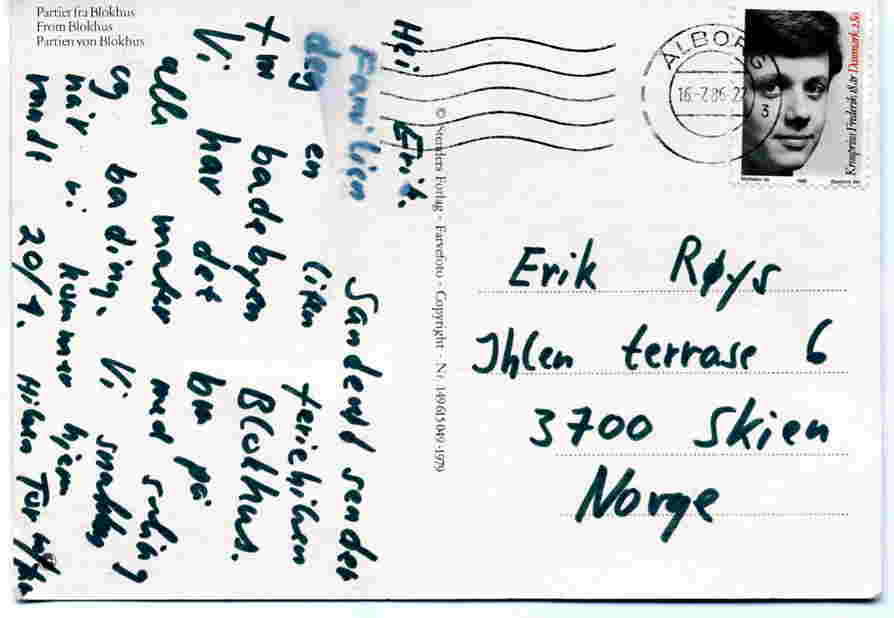 Partier fra Blokhus
From Blokhus
Partien von Blokhus
Hei Erik.
Familien sender
deg en liten feriehilsen
fra badebyen Blokhus.
Vi har det bra på
alle måter med soling
og bading. Vi snakkes
når vi kommer hjem
rundt 20/7. Hilsen Tor
© Stenders Forlag - Farvefoto - Copyright - Nr. 149 615 049 - 1979
ÅLBORG
16-7.86-22
3
Kronprins Frederik 18 år Danmark 2.80
Erik Røys
Ihlen terrase 6
3700 Skien
Norge